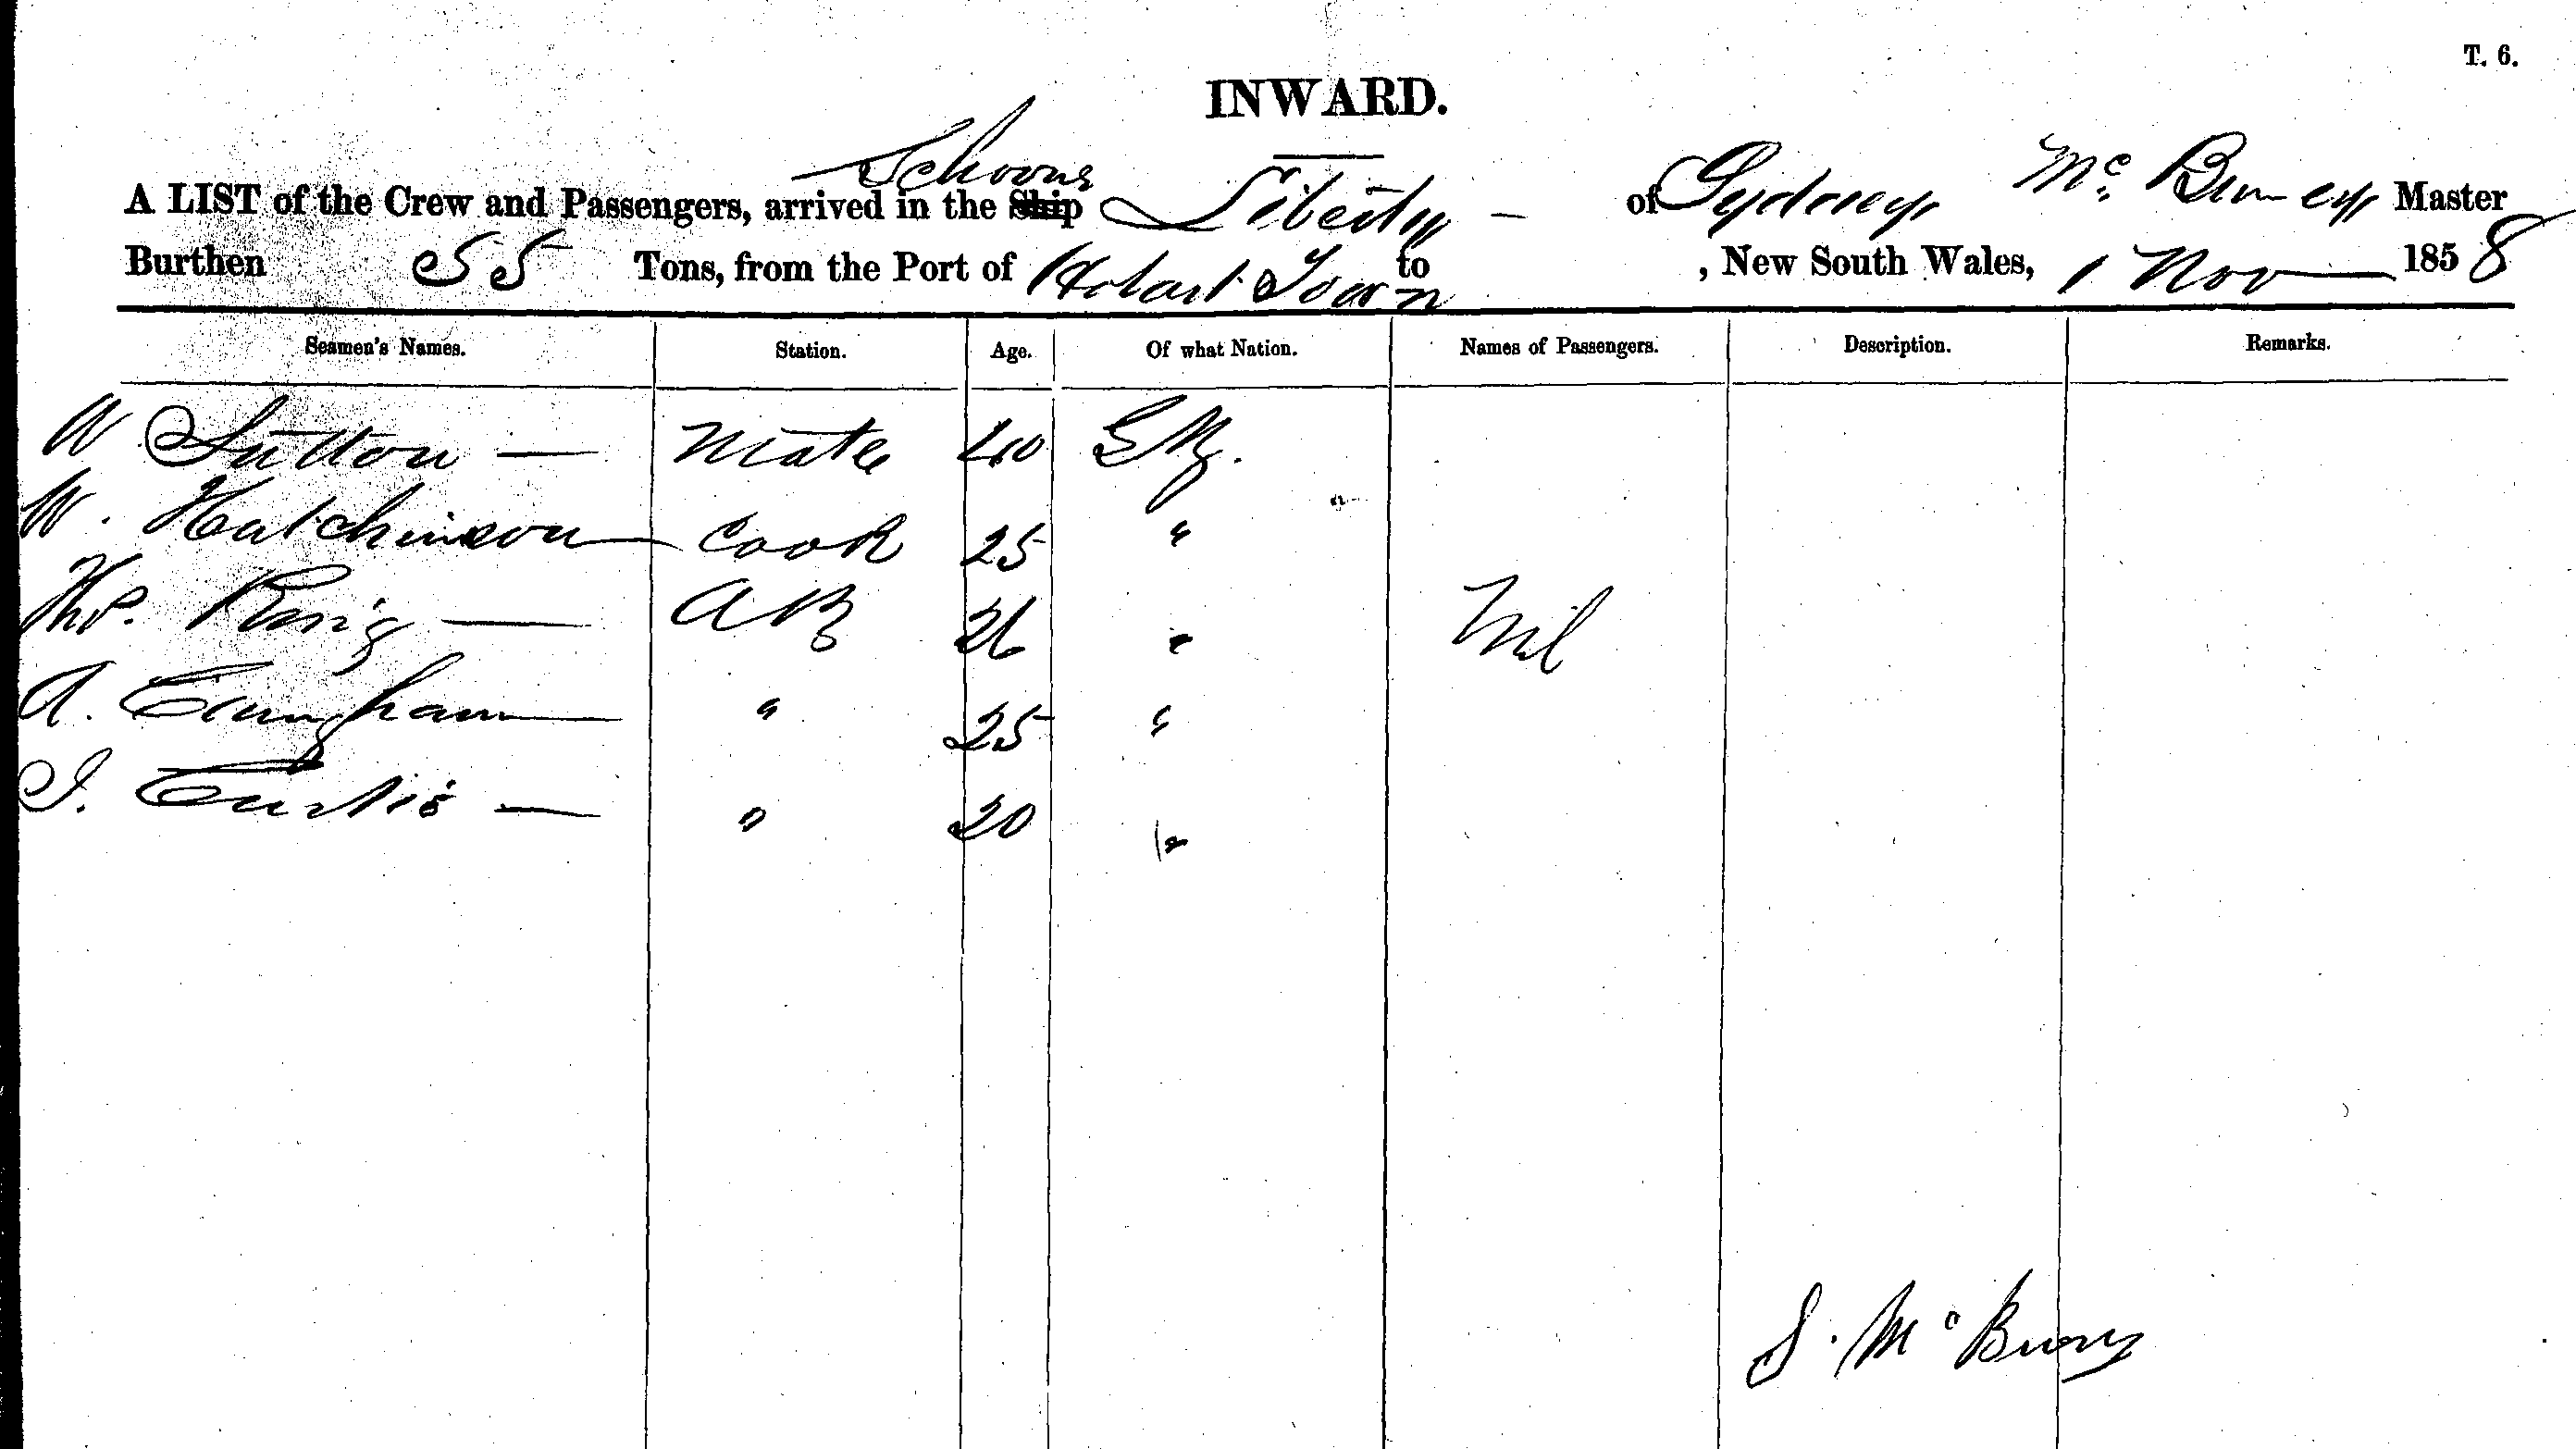 T. 6.
INWARD.
A LIST of the Crew and Passengers, arrived in the Ship Schooner Liberty - of Sydney Mc Burney Master
Burthen 55 Tons, from the Port of Hobart Town to , New South Wales, 1 Nov 1858
Seamen's Names. Station. Age. Of what Nation. Names of Passengers. Description. Remarks.
W Sutton — Mate 40 Eng.
W. Hutchinson Cook 25 "
Thos. — AB 26 " Nil
A. " 25 "
J. Curtis — " 20 "
S. Mc Burny